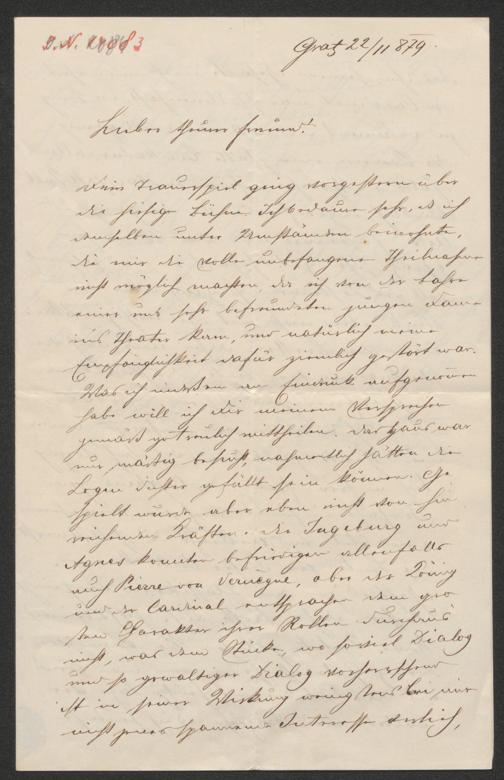 I. N.
Graz 22/11 879.
Lieber theurer Freund!
Dein Trauerspiel ging vorgestern über
die hiesige Bühne. Ich bedaure sehr, daß ich
demselben unter Umständen beiwohnte,
die mir die volle unbefangene Theilnahme
nicht möglich machten, da ich von der Bahre
einer uns sehr befreundeten jungen Dame
ins Theater kam, und natürlich meine
Empfänglichkeit dafür ziemlich gestört war.
Was ich indessen an Eindruck aufgenommen
habe will ich Dir meinem Versprechen
gemäß getreulich mittheilen. Das Haus war
nur mäßig besucht, nahmentlich hätten die
Logen besser gefüllt sein können. Ge
spielt wurde aber eben nicht von hin
reichenden Kräften. Die Ingeburg und
Agnes konnten befriedigen allenfalls
auch Pierre von aber der König
und der Cardinal entsprachen dem gro
ßen Charakter ihrer Rollen durchaus
nicht, was dem Stücke, wo soviel Dialog
und so gewaltiger Dialog vorherrschend
ist in seiner Wirkung wenigstens bei mir
nicht jenes spannende Interesse verlieh,